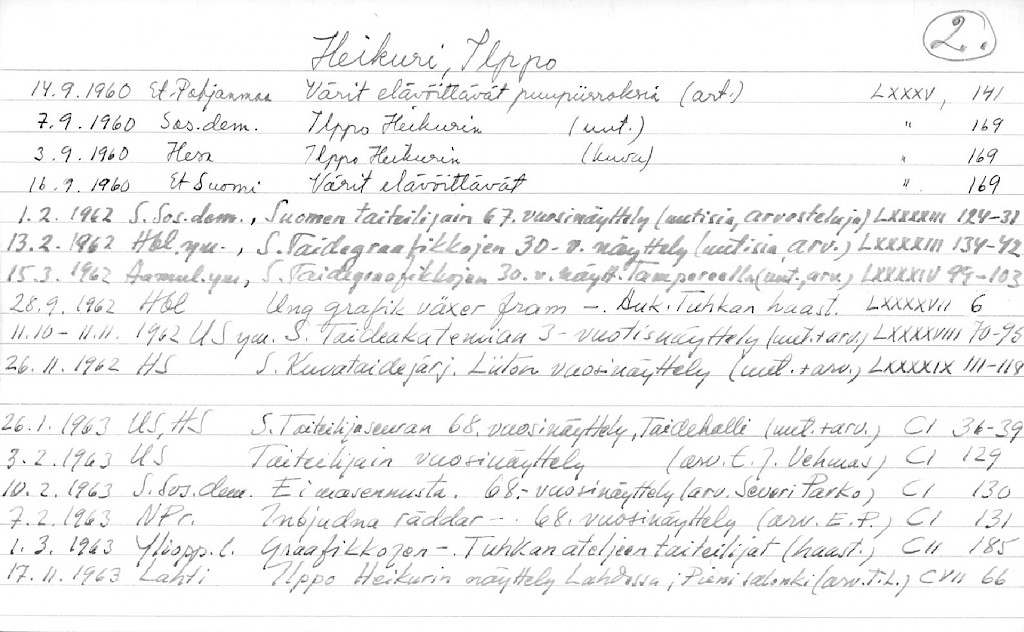 2.
Heikuri, Ilppo
14.9.1960 Et-Pohjanmaa Värit elävöittävät puupiirroksia (art.) LXXXV, 141
7.9.1960 Sos.dem. Ilppo Heikurin (uut.) " 169
3.9.1960 Hesa Ilppo Heikurin (kuva) " 169
16.9.1960 Et Suomi Värit elävöittävät " 169
1.2.1962 S.Sos.dem., Suomen taiteilijain 67.vuosinäyttely (uutisia, arvosteluja) LXXXXIII 124-31
13.2.1962 Hbl.ym., S.Taidegraafikkojen 30-v. näyttely (uutisia, arv.) LXXXXIII 134-42
15.3.1962 Aamul.ym, S.Taidegraafikkojen 30.v.näytt.Tampereella (uut.,arv.) LXXXXIV 99-103
28.9.1962 Hbl Ung grafik växer fram - Auk.Tuhkan haast. LXXXXVII 6
11.10-11.11. 1962 US ym. S.Taideakatemian 3-vuotisnäyttely (uut.+arv.) LXXXXVIII 70-95
26.11.1962 HS S.Kuvataidejärj. Liiton vuosinäyttely (uut.+arv.) LXXXXIX 111-118
26.1.1963 US, HS S.Taiteilijaseuran 68.vuosinäyttely, Taidehalli (uut.+arv.) CI 36-39
3.2.1963 US Taiteilijain vuosinäyttely (arv.E.J.Vehmas) CI 129
10.2.1963 S.Sos.dem. Ei masennusta. 68.-vuosinäyttely (arv.Severi Parko) CI 130
7.2.1963 NPr. Inbjudna räddar -. 68.vuosinäyttely (arv.E.P.) CI 131
1.3.1963 Yliopp.l. Graafikkojen-. Tuhkan ateljeen taiteilijat (haast.) CII 185
17.11.1963 Lahti Ilppo Heikurin näyttely Lahdessa; Pieni salonki (arv.T.L.) CVII 66